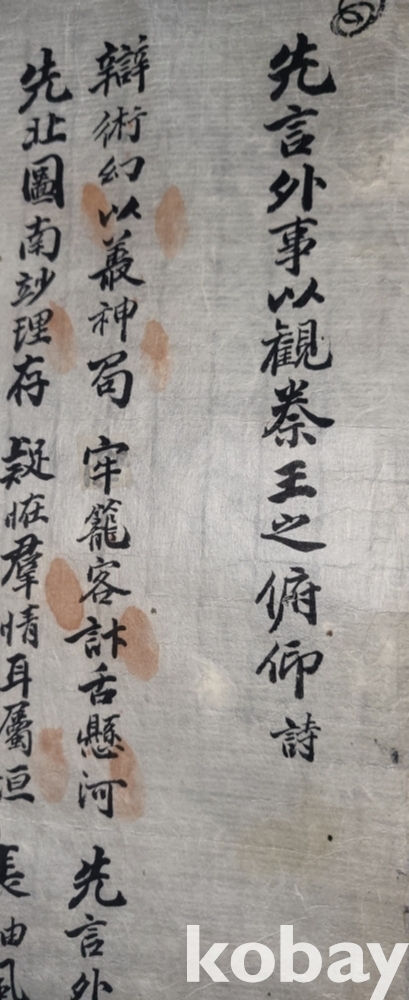 先言外事以觀秦王之俯仰詩
辯術幻以羲神蜀 牢籠客計舌懸河 先言外
先北圖南妙理存 疑眩羣情耳屬垣 長袖風
kobay